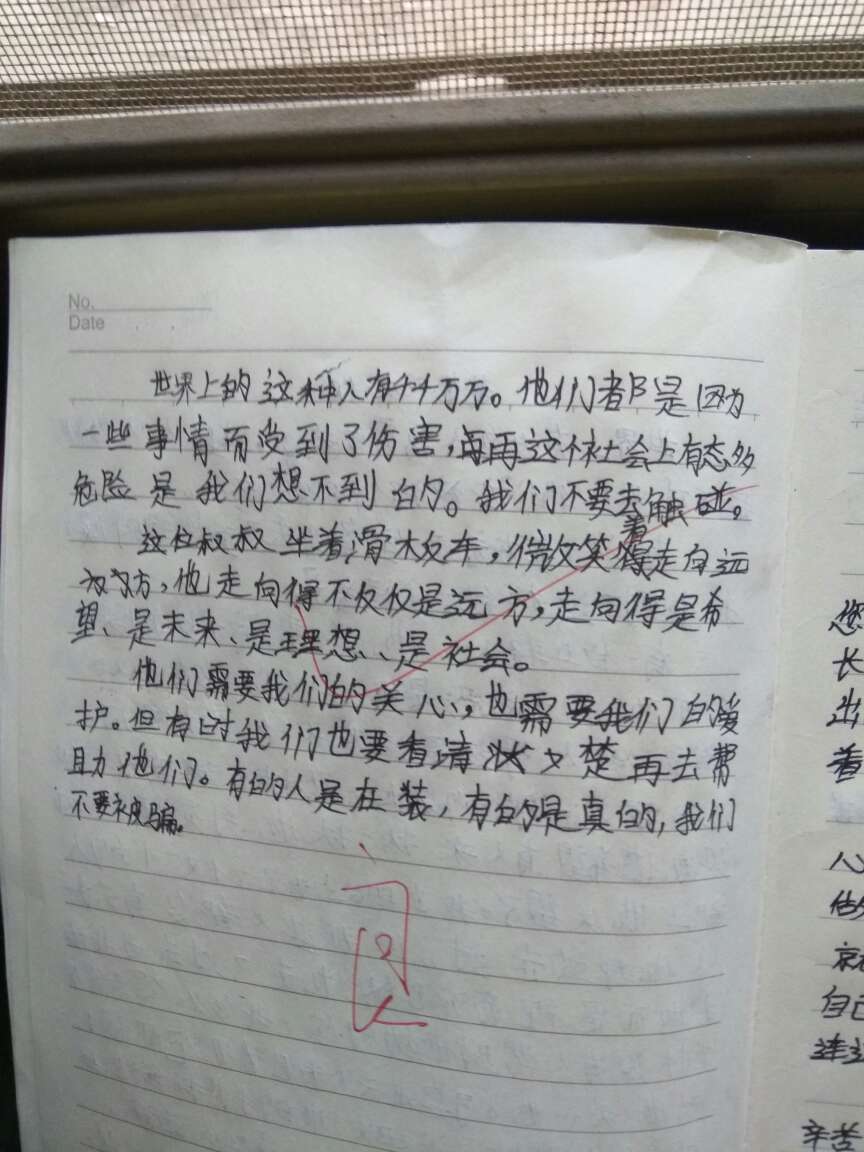 No.
Date
世界上的这种人有千千万万。他们都是因为
一些事情而受到了伤害,再这个社会上有态多
危险是我们想不到的。我们不要去触碰。
这位叔叔坐着滑板车,微笑着走向远
方,他走向得不仅仅是远方,走向得是希
望、是未来、是理想、是社会。
他们需要我们的关心,也需要我们的爱
护。但有时我们也要看清楚再去帮
助他们。有的人是在装,有的是真的,我们
不要被骗。
阅
您
长
出
着
心
自己
辛苦